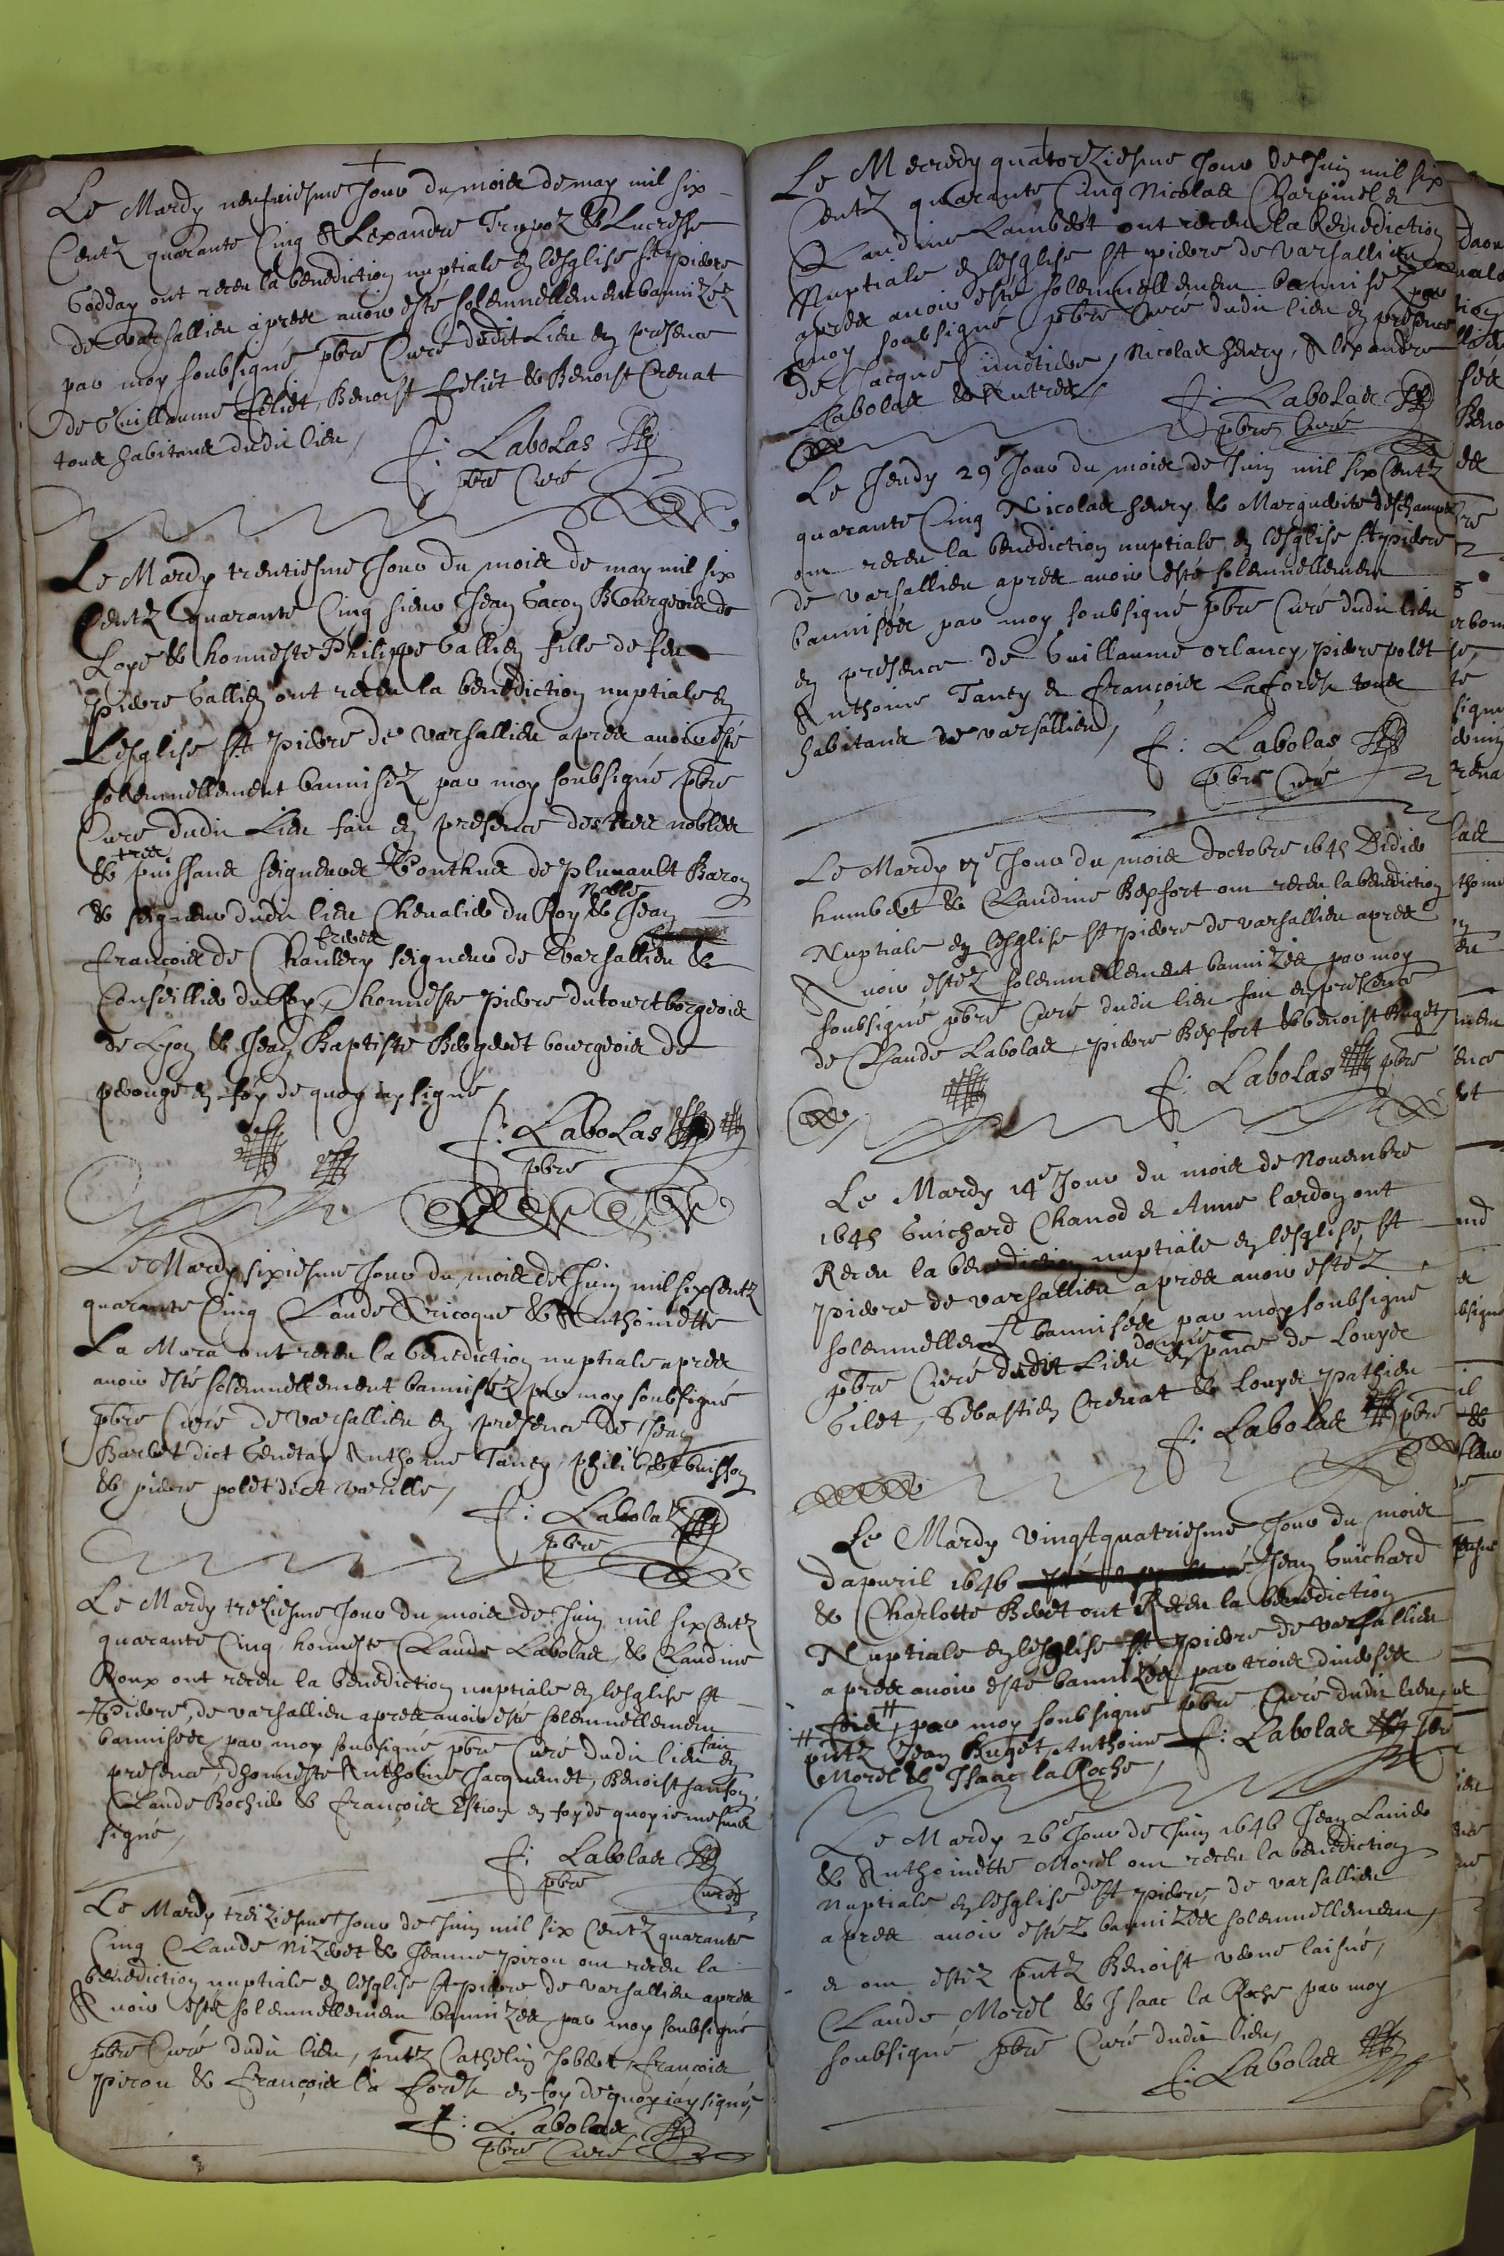 Le Mardy neufviesme Jour du mois de may mil six
Centz quarante Cinq Alexandre & Lucresse
Godday ont receu la benediction nuptiale en lesglise st pierre
de Varsallieu apres avoir esté solemnellement bannizéz
par moy soubsigné pbre Curé dudit Lieu en presence
de Guillaume feliet, Benoist feliet & Benoist Crenat
tous habitans dudit lieu,
f: Labolas
pbre Curé
Le Mardy trentiesme Jour du mois de may mil six
Centz quarante Cinq sieur Jean Gacon Bourgeois de
& honneste Philippe Gallien fille de feu
pierre Gallien ont receu la benediction nuptiale en
Lesglise st pierre de varsallieu apres avoir esté
solemnellement bannisez par moy soubsigné pbre
Curé dudit Lieu fait en presence des tres nobles
& tres puissans seigneurs de Baron
& seigneur dudit lieu Chevalier du Roy & Noble Jean
françois de seigneur de Varsallieu &
Conseillier du Roy, honneste pierre dutourt borgeois
de Lyon & Jean Baptiste bourgeois de
perouge en foy de quoy ay signé
f: Labolas
pbre
Le Mardy sixiesme Jour du mois de Juin mil six Centz
quarante Cinq Claude & Anthoinette
La Mura ont receu la benediction nuptiale apres
avoir esté solemnellement bannisez par moy soubsigné
pbre Curé de varsallieu en presence de Jean
Barbet dict Anthoine Tancy, philibert buisson
& pierre polet dict
f: Labolas
pbre
Le Mardy treziesme Jour du mois de Juin mil six Centz
quarante Cinq honneste Claude Labolas & Claudine
Roux ont receu la benediction nuptiale en lesglise st
Pierre de varsallieu apres avoir esté solemnellement
bannisés par moy soubsigné pbre Curé dudit lieu fait en
presence dhonneste Anthoine Jacquemet, Benoist
Claude Bochier & françois Estion en foy de quoy
signé,
f: Labolas
pbre Curé
Le Mardy treiziesme Jour de Juin mil six Centz quarante
Cinq Claude Nizeret & Jeanne piron ont receu la
benediction nuptiale en lesglise st pierre de varsallieu apres
Avoir esté solemnellement bannizés par moy soubsigné
pbre Curé dudit lieu, pntz Cathelin Jobert, françois
piron & françois la forest en foy de quoy iay signé,
f: Labolas
pbre Curé
Le Mecredy quatorziesme Jour de Juin mil six
Centz quarante Cinq Nicolas Charpinel &
Claudine Lambert ont receu la benediction
Nuptiale en lesglise st pierre de varsallieu
apres avoir esté solemnellement bannisez par
moy soubsigné pbre Curé dudit lieu en presence
de Jacque Nicolas henry, Alexandre
Labolas & Autres,
f: Labolas
pbre Curé
Le Jeudy 29e Jour du mois de Juin mil six Centz
quarante Cinq Nicolas henry & Marguerite deschamps
ont receu la benediction nuptiale en lesglise st pierre
de varsallieu apres avoir esté solemnellement
bannisés par moy soubsigné pbre Curé dudit lieu
en presence de Guillaume orlancy, pierre polet
Anthoine Tancy & françois Laforest tous
habitans de varsallieu,
f: Labolas
pbre Curé
Le Mardy 17e Jour du mois doctobre 1645 Didier
humbert & Claudine Beyfort ont receu la benediction
Nuptiale en lesglise st pierre de varsallieu apres
Avoir estez solemnellement bannizés par moy
soubsigné pbre Curé dudit lieu fait en presence
de Claude Labolas, pierre Beyfort & benoist Buget,
f: Labolas pbre
Le Mardy 14e Jour du mois de Novembre
1645 Guichard Chanod & Anne lardon ont
Receu la benediction nuptiale en lesglise st
pierre de varsallieu apres avoir estéz
solemnellemt bannisés par moy soubsigné
pbre Curé dudit Lieu en pnce de Louys
Gilet, Sebastien Crenat & Louys pathieu
f: Labolas pbre
Le Mardy vingtquatriesme Jour du mois
dapvril 1646 Jean Guichard
& Charlotte Beret ont Receu la benediction
Nuptiale en lesglise st pierre de varsallieu
apres avoir esté bannizés par trois diverses
fois par moy soubsigné pbre Curé dudit lieu
pntz Jean Buget, Anthoine
Morel & Isaac la Roche,
f: Labolas
Le Mardy 26e Jour de Juin 1646 Jean Lanier
& Anthoinette Morel ont receu la benediction
nuptiale en lesglise de st pierre de varsallieu
apres avoir estéz bannizés solemnellement,
& ont estéz pntz Benoist verne laisné,
Claude Morel & Isaac la Roche par moy
soubsigné pbre Curé dudit lieu,
f: Labolas